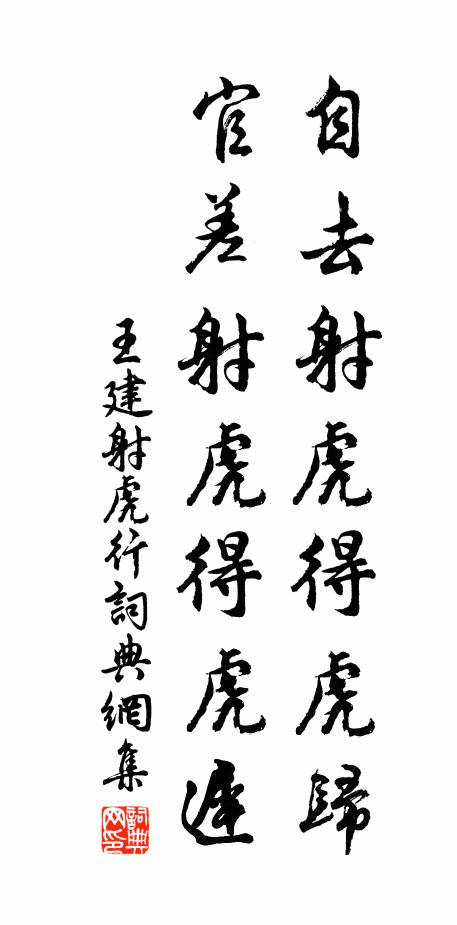 自去射虎得虎歸
官差射虎得虎遲
王建射虎行詞典網集
詞典網印